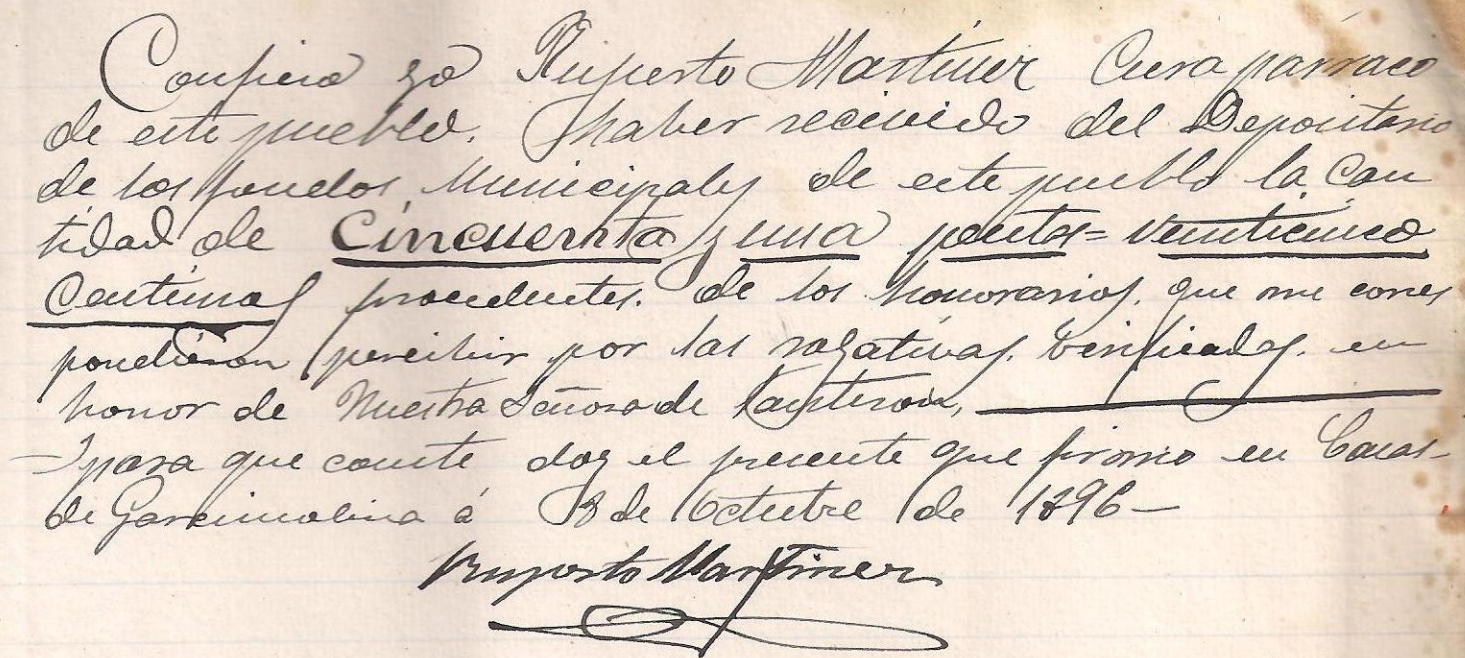 Confieso yo Ruperto Martinez Cura párraco
de este pueblo. haber recivido del Depositario
de los fondos Municipales de este pueblo la Can
tidad de Cincuenta y una pesetas = Veinticinco
Centimos procedentes. de los honorarios. que me corres
pondieron percibir por las rogativas. verificadas. en
honor de Nuestra Señora de
Y para que conste doy el presente que firmo en Casas-
de Garcimolina á 8 de Octubre de 1896—
Ruperto Martinez